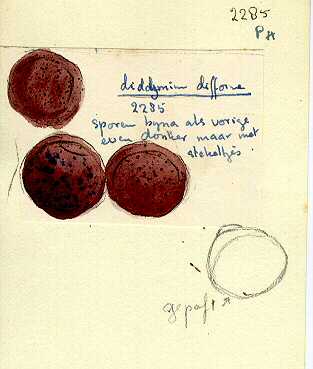 2285
PH
diddymium difforme
2285
sporen byna als vorige
even donker maar met
stekeltjes